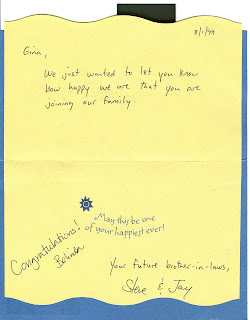 8/1/99
Ginn,
We just wanted to let you know
how happy we are that you are
joining our family.
May this be one
of your happiest ever!
Congratulations!
Belinda
Your future brother-in-laws,
Steve & Jay